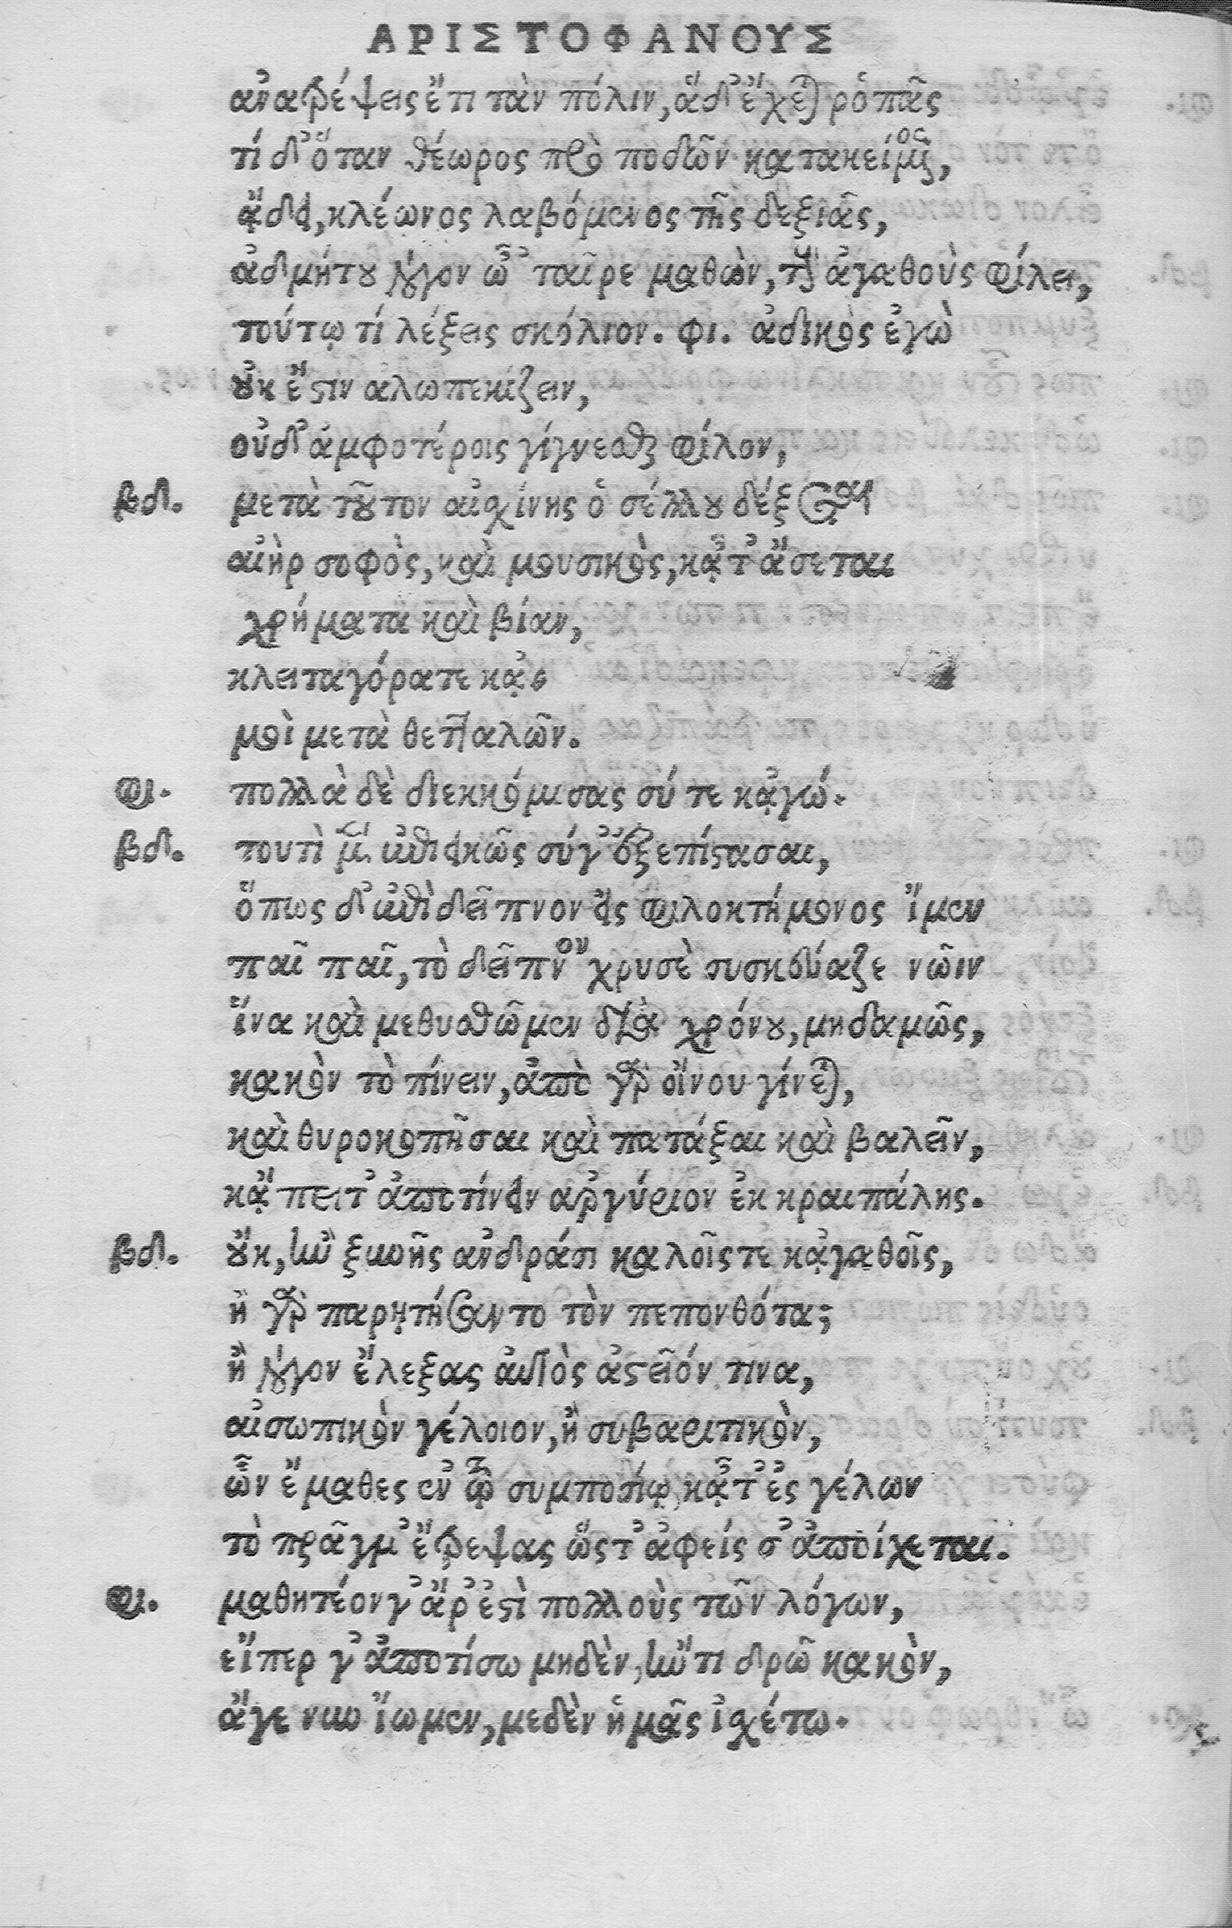 ΑΡΙΣΤΟΦΑΝΟΥΣ
ἀνατρέψεις ἔτι τὰν πόλιν, ἅδ' ἔχεται ῥοπᾶς
τί δ' ὅταν θέωρος πρὸ ποδῶν κατακείμενος,
ᾄδει, κλέωνος λαβόμενος τῆς δεξιᾶς,
ἀδμήτου λόγον ὦ 'ταῖρε μαθὼν, τοὺς ἀγαθοὺς φίλει,
τούτῳ τί λέξεις σκόλιον. φι. ἀδικὸς ἐγὼ
οὐκ ἔστιν αλωπεκίζειν,
οὐδ' ἀμφοτέροις γίγνεσθαι φίλον,
βδ. μετὰ τοῦτον αἰσχίνης ὁ σέλλου δέξεται
ἀνὴρ σοφὸς, καὶ μουσικὸς, κᾆτ' ᾄσεται
χρήματα καὶ βίαν,
κλειταγόρατε κᾀ
μοὶ μετὰ θετταλῶν.
φι. πολλὰ δὲ διεκκόμισας σύ τε κᾀγώ.
βδ. τουτὶ μέν ἐπιεικῶς σύγ' ἐξεπίστασαι,
ὅπως δ' ἐπὶ δεῖπνον εἰς φιλοκτήμονος ἴμεν
παῖ παῖ, τὸ δεῖπνον χρυσὲ συσκεύαζε νῶιν
ἵνα καὶ μεθυσθῶμεν διὰ χρόνου, μηδαμῶς,
κακὸν τὸ πίνειν, ἀπὸ γὰρ οἴνου γίνεται,
καὶ θυροκοπῆσαι καὶ πατάξαι καὶ βαλεῖν,
κᾄπειτ' ἀποτίνειν αργύριον ἐκ κραιπάλης.
βδ. οὔκ, ἢν ξυνῆς ἀνδράσι καλοῖς τε κᾀγαθοῖς,
ἢ γὰρ παρῃτήσαντο τὸν πεπονθότα;
ἢ λόγον ἔλεξας αὐτὸς ἀστεῖόν τινα,
αἰσωπικὸν γέλοιον, ἢ συβαριτικὸν,
ὧν ἔμαθες ἐν τῷ συμποσίῳ, κᾆτ' ἐς γέλων
τὸ πρᾶγμ' ἔτρεψας ὥστ' ἀφείς σ' ἀποίχεται.
φι. μαθητέον γ' ἄρ' ἐστὶ πολλοὺς τῶν λόγων,
εἴπερ γ' ἀποτίσω μηδὲν, ἤν τι δρῶ κακὸν,
ἄγε νυν ἴωμεν, μεδὲν ἡμᾶς ἰσχέτω.